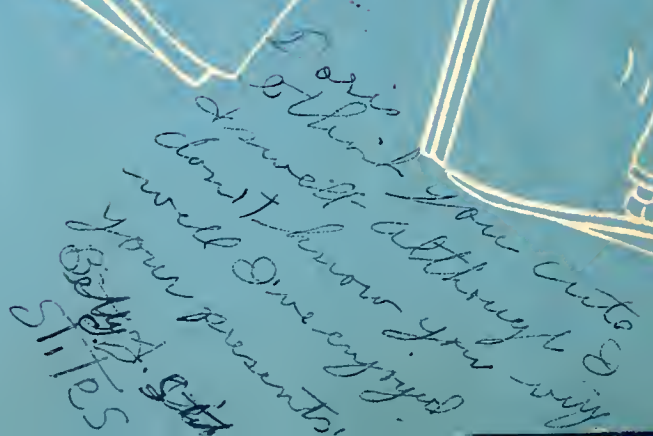 I think you cute &
sweet although I
don't know you very
well I've enjoyed
your presents.
Betty
STITES